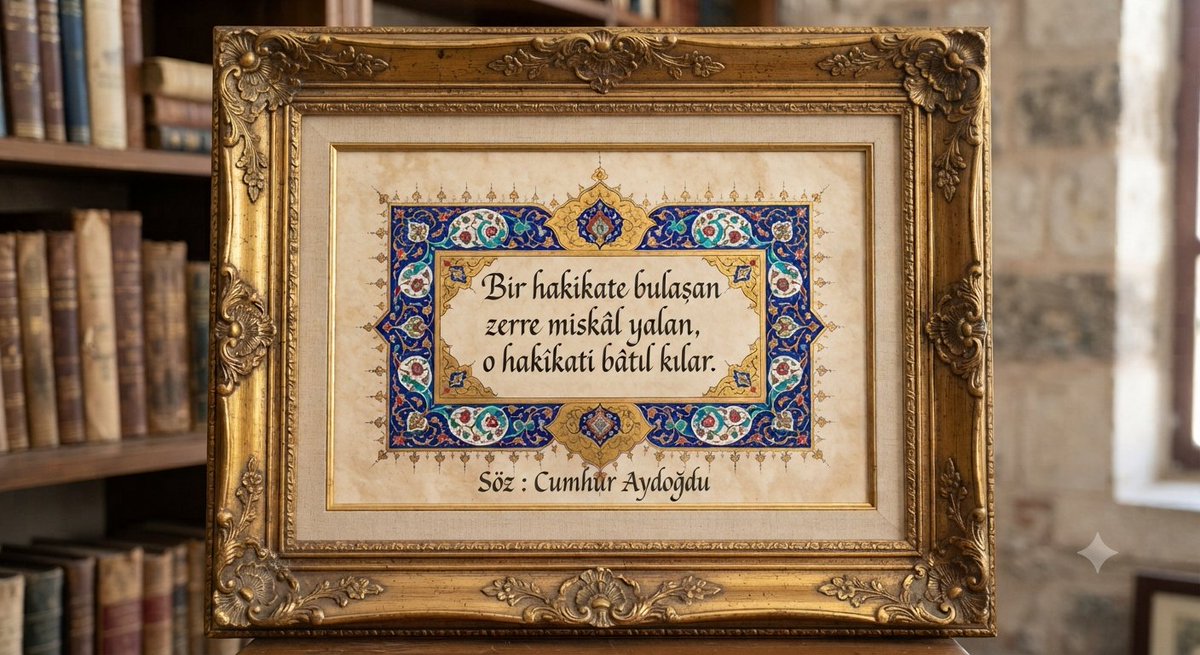 Bir hakikate bulaşan
zerre miskâl yalan,
o hakîkati bâtıl kılar.
Söz : Cumhur Aydoğdu